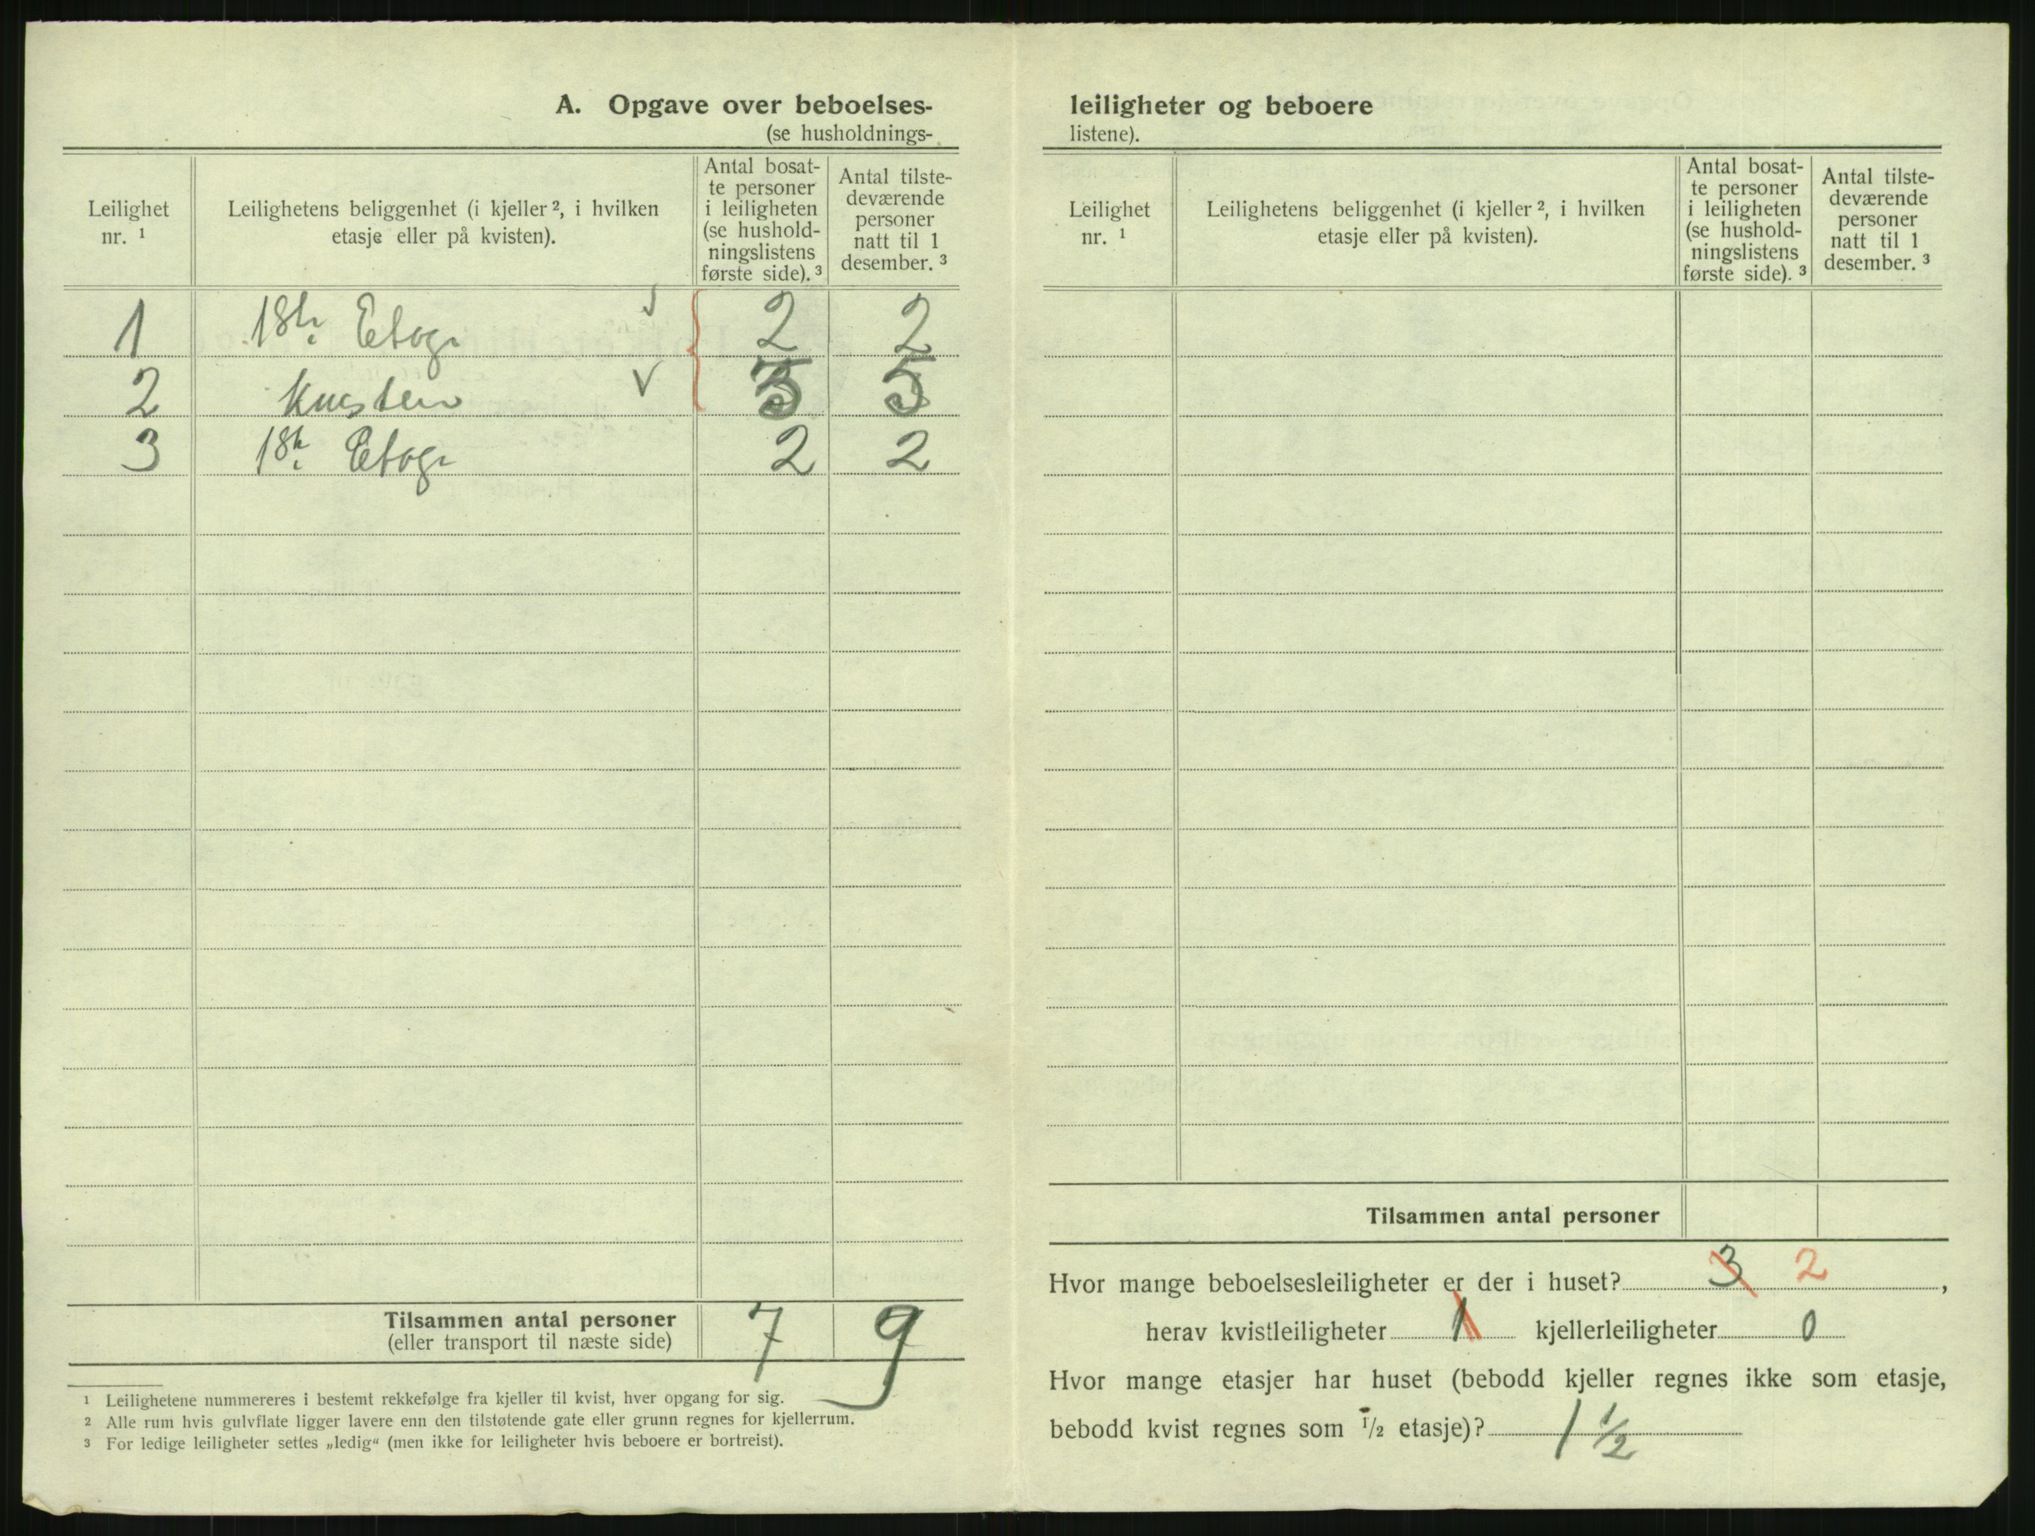 A. Opgave over beboelses-
(se husholdnings-
Leilighet nr. ¹
Leilighetens beliggenhet (i kjeller ², i hvilken etasje eller på kvisten).
Antal bosat-
te personer
i leiligheten
(se hushold-
ningslistens
første side). ³
Antal tilste-
deværende
personer
natt til 1
desember. ³
1 1ste Etage 2 2
2 Kvisten 5 5
3 1ste Etage 2 2
Tilsammen antal personer 7 9
(eller transport til næste side)
¹ Leilighetene nummereres i bestemt rekkefølge fra kjeller til kvist, hver opgang for sig.
² Alle rum hvis gulvflate ligger lavere enn den tilstøtende gate eller grunn regnes for kjellerrum.
³ For ledige leiligheter settes „ledig“ (men ikke for leiligheter hvis beboere er bortreist).
leiligheter og beboere
listene).
Leilighet nr. ¹
Leilighetens beliggenhet (i kjeller ², i hvilken etasje eller på kvisten).
Antal bosat-
te personer
i leiligheten
(se hushold-
ningslistens
første side). ³
Antal tilste-
deværende
personer
natt til 1
desember. ³
Tilsammen antal personer
Hvor mange beboelsesleiligheter er der i huset? 3 2,
herav kvistleiligheter 1 kjellerleiligheter 0
Hvor mange etasjer har huset (bebodd kjeller regnes ikke som etasje,
bebodd kvist regnes som ½ etasje)? 1 ½